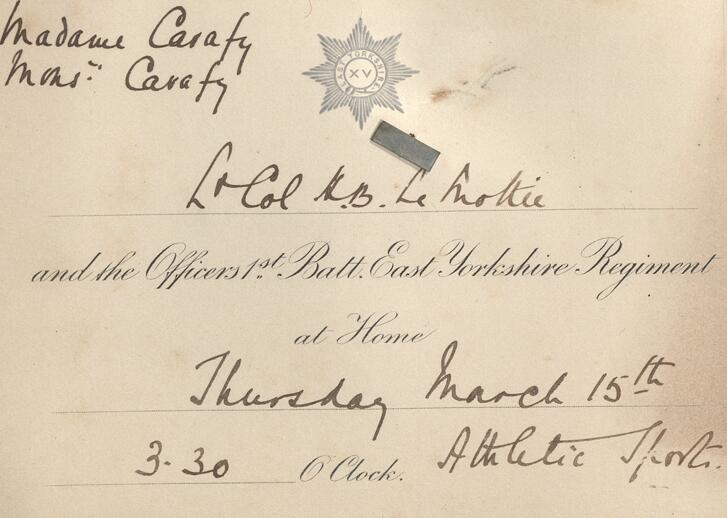 Madame Carafy
Monsr. Carafy
EAST YORKSHIRE
XV
Lt Col H.B. Le Mottie
and the Officers 1st Batt. East Yorkshire Regiment
at Home
Thursday March 15th
3.30 O'Clock. Athletic Sports.